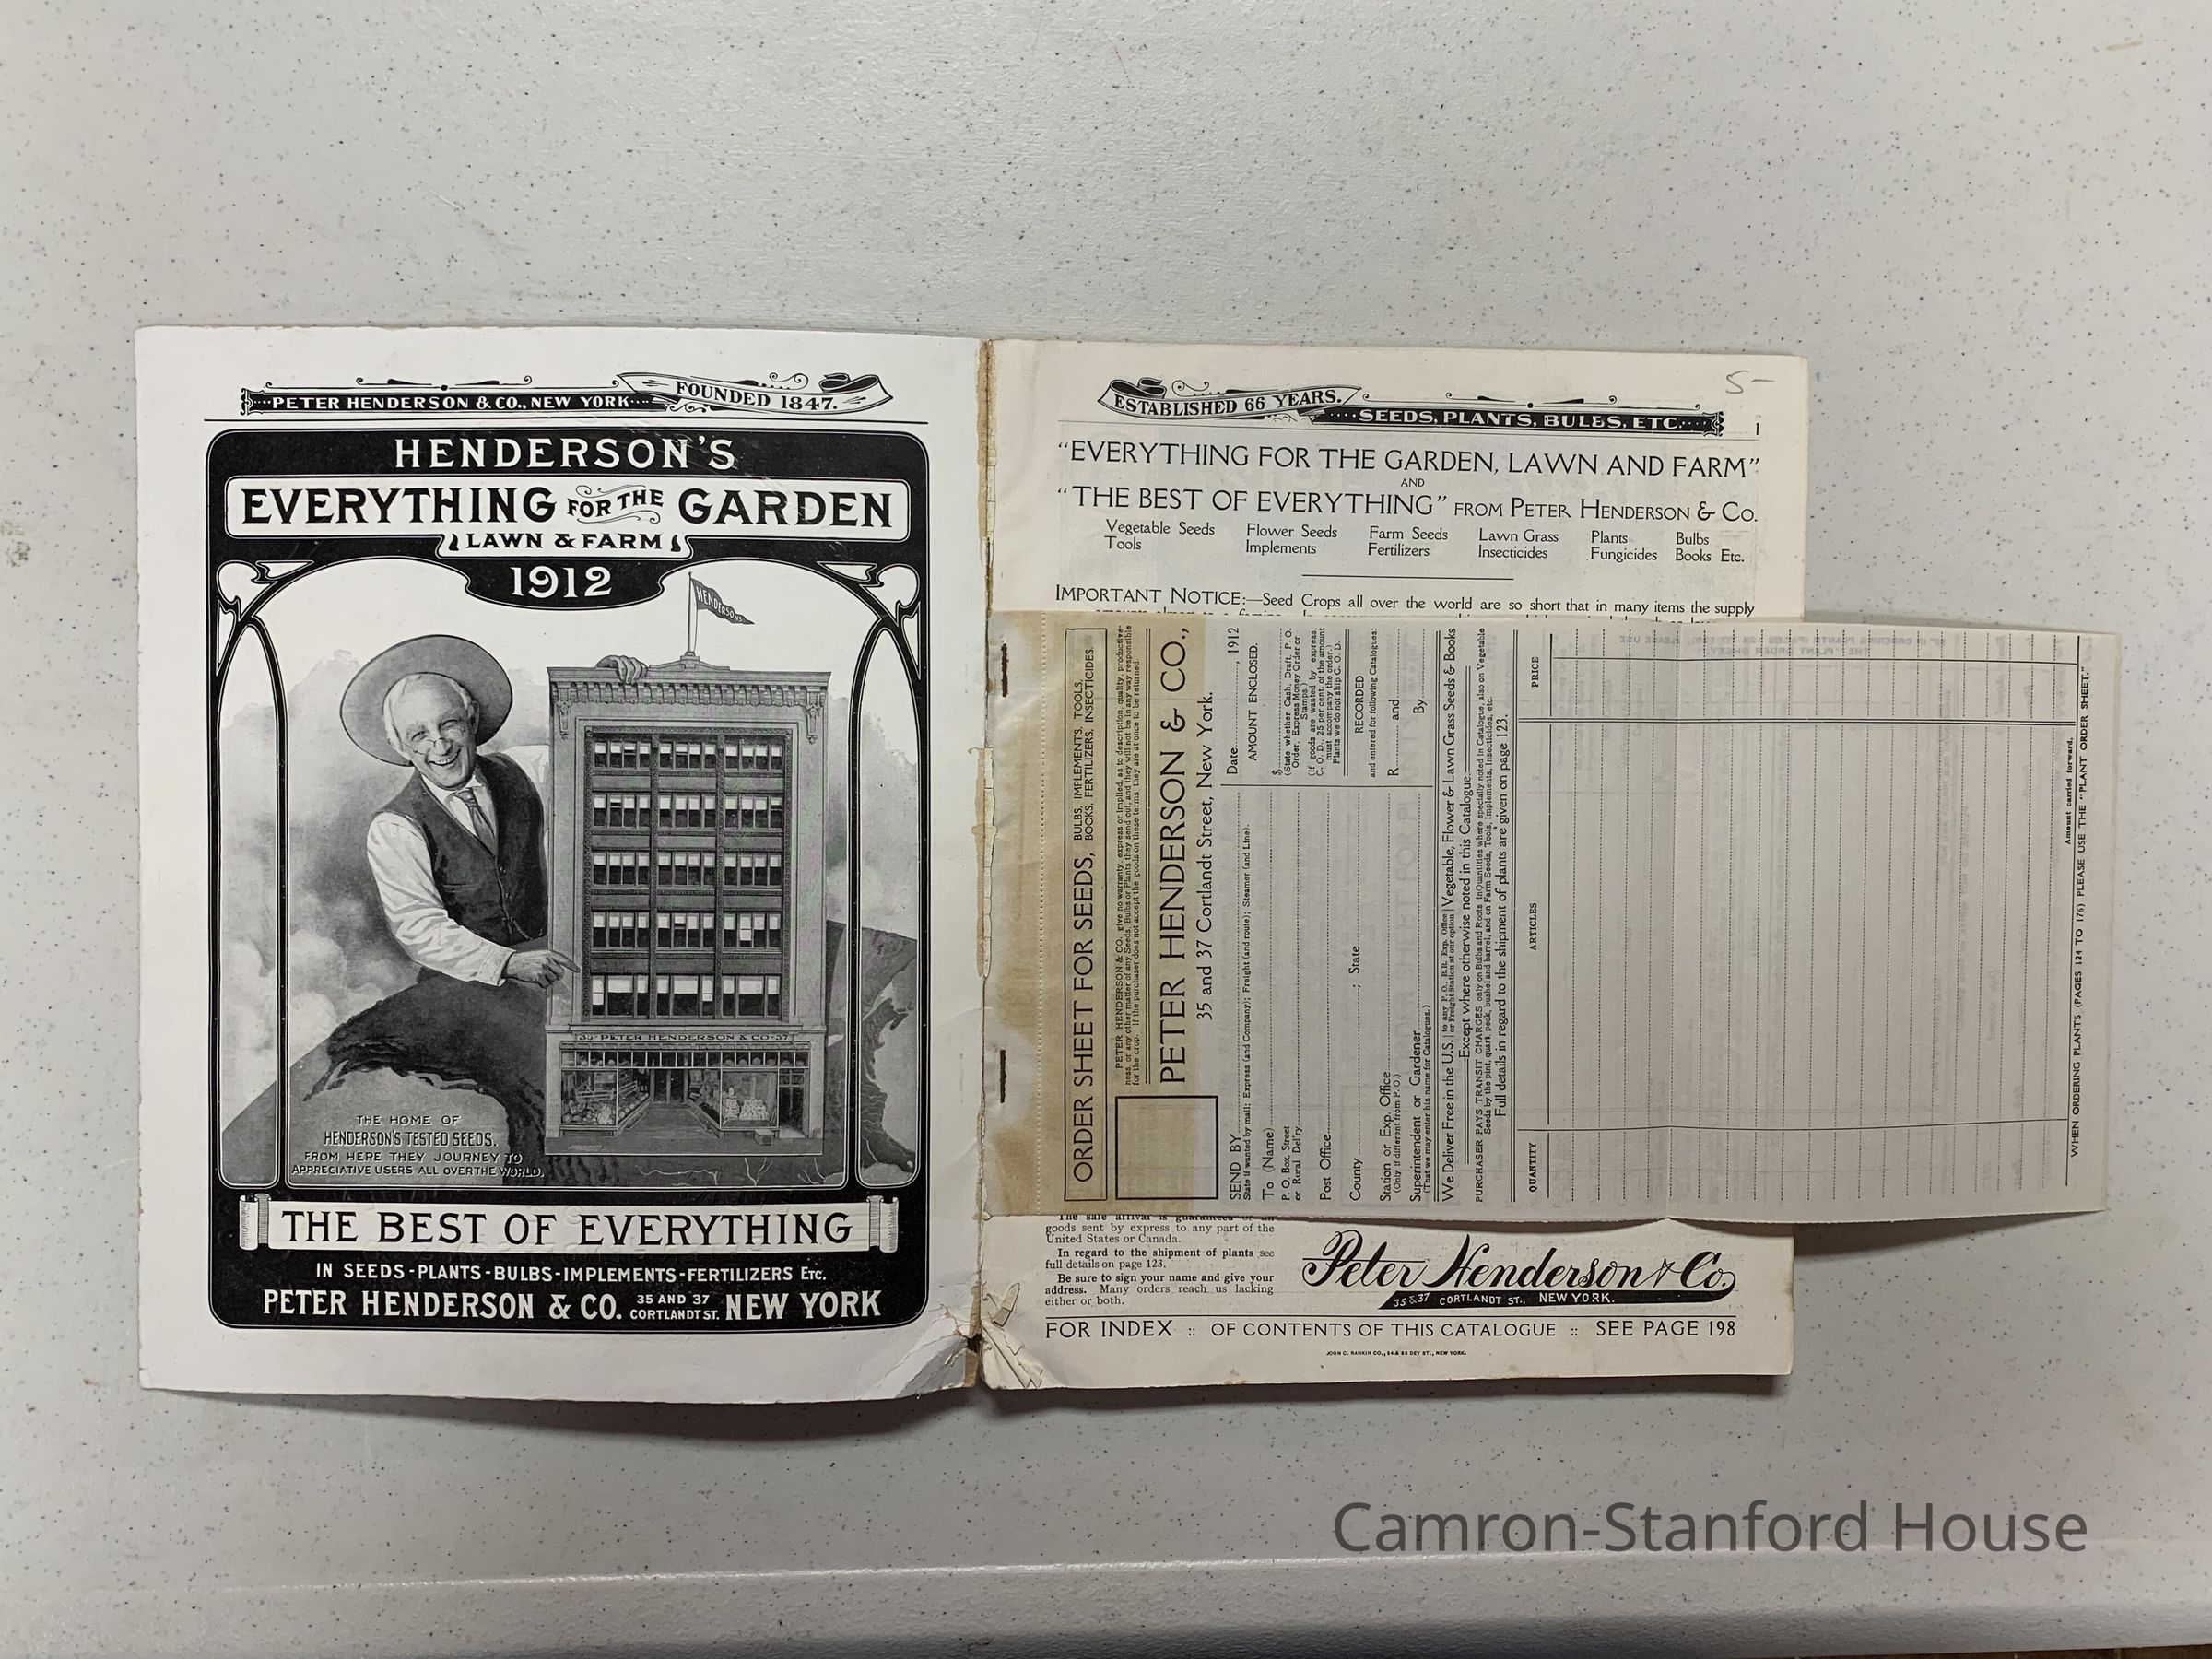 PETER HENDERSON & CO., NEW YORK
FOUNDED 1847.
HENDERSON'S
EVERYTHING FOR THE GARDEN
LAWN & FARM
1912
HENDERSONS
35 - PETER HENDERSON & CO - 37
THE HOME OF
HENDERSON'S TESTED SEEDS.
FROM HERE THEY JOURNEY TO
APPRECIATIVE USERS ALL OVER THE WORLD.
THE BEST OF EVERYTHING
IN SEEDS-PLANTS-BULBS-IMPLEMENTS-FERTILIZERS ETC.
PETER HENDERSON & CO. 35 AND 37 CORTLANDT ST. NEW YORK
5-
ESTABLISHED 66 YEARS.
SEEDS, PLANTS, BULBS, ETC.
1
"EVERYTHING FOR THE GARDEN, LAWN AND FARM"
AND
"THE BEST OF EVERYTHING" FROM PETER HENDERSON & CO.
Vegetable Seeds Flower Seeds Farm Seeds Lawn Grass Plants Bulbs
Tools Implements Fertilizers Insecticides Fungicides Books Etc.
IMPORTANT NOTICE:—Seed Crops all over the world are so short that in many items the supply
ORDER SHEET FOR SEEDS, BULBS, IMPLEMENTS, TOOLS, BOOKS, FERTILIZERS, INSECTICIDES.
PETER HENDERSON & CO. give no warranty, express or implied, as to description, quality, productive-
ness, or any other matter of any Seeds, Bulbs or Plants they send out, and they will not be in any way responsible
for the crop. If the purchaser does not accept the goods on these terms they are at once to be returned.
PETER HENDERSON & CO.,
35 and 37 Cortlandt Street, New York.
Date , 1912
AMOUNT ENCLOSED.
$
(State whether Cash, Draft, P. O.
Order, Express Money Order or
Stamps.)
(If goods are wanted by express,
C. O. D., 25 per cent. of the amount
must accompany the order.)
Plants we do not ship C. O. D.
RECORDED
and entered for following Catalogues:
R and
By
SEND BY
State if wanted by mail; Express (and Company); Freight (and route); Steamer (and Line).
To (Name)
P. O. Box, Street
or Rural Del'ry
Post Office
County ; State
Station or Exp. Office
(Only if different from P. O.)
Superintendent or Gardener
(That we may enter his name for Catalogues.)
We Deliver Free in the U.S. to any P. O., R.R. Exp. Office or Freight Station at our option Vegetable, Flower & Lawn Grass Seeds & Books
Except where otherwise noted in this Catalogue.
PURCHASER PAYS TRANSIT CHARGES only on Bulbs and Roots in Quantities where specially noted in Catalogue, also on Vegetable
Seeds by the pint, quart, peck, bushel and barrel, and on Farm Seeds, Tools, Implements, Insecticides, etc.
Full details in regard to the shipment of plants are given on page 123.
QUANTITY ARTICLES PRICE
Amount carried forward,
WHEN ORDERING PLANTS (PAGES 124 TO 176) PLEASE USE THE "PLANT ORDER SHEET."
The safe arrival is guaranteed of all
goods sent by express to any part of the
United States or Canada.
In regard to the shipment of plants see
full details on page 123.
Be sure to sign your name and give your
address. Many orders reach us lacking
either or both.
Peter Henderson & Co.
35 & 37 CORTLANDT ST., NEW YORK.
FOR INDEX :: OF CONTENTS OF THIS CATALOGUE :: SEE PAGE 198
JOHN C. RANKIN CO., 54 & 56 DEY ST., NEW YORK.
Camron-Stanford House